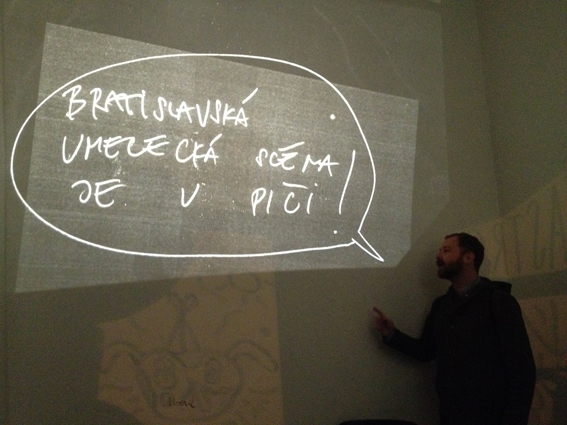 BRATISLAVSKÁ
UMELECKÁ SCÉNA
JE V PIČI!